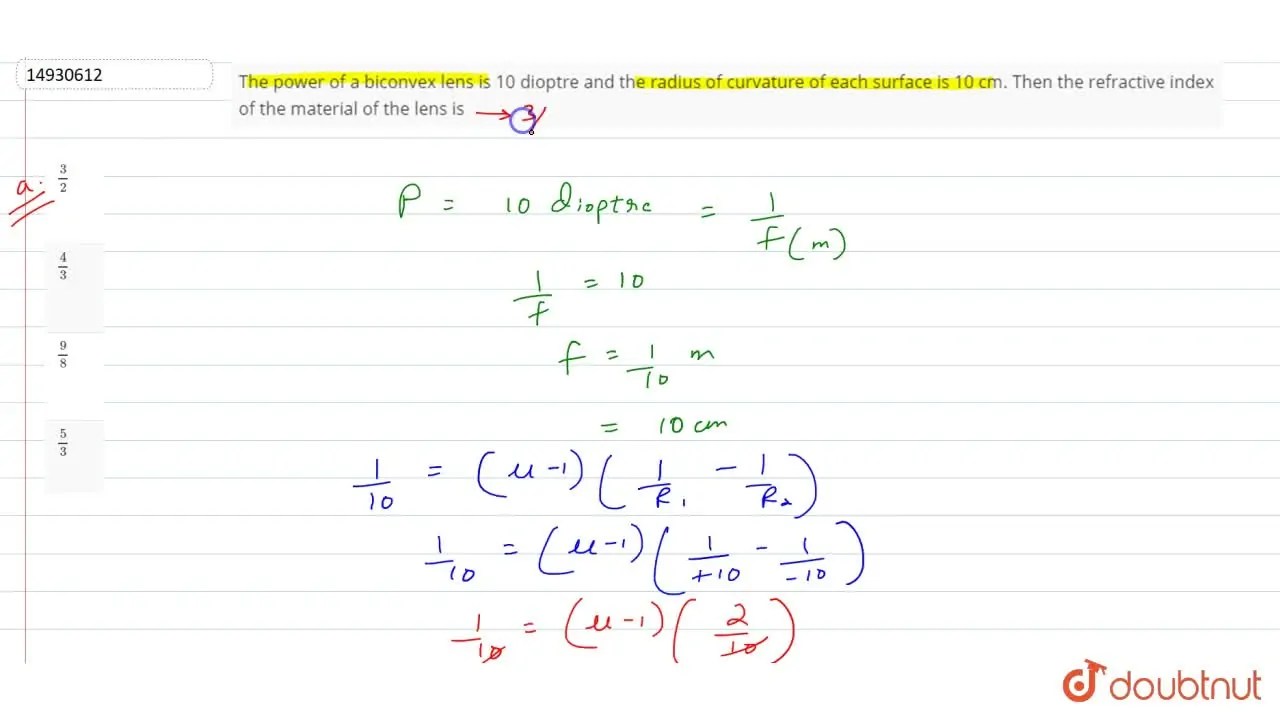 14930612
The power of a biconvex lens is 10 dioptre and the radius of curvature of each surface is 10 cm. Then the refractive index
of the material of the lens is → 3/
a.
3/2
4/3
9/8
5/3
P = 10 Dioptre = 1/f(m)
1/f = 10
f = 1/10 m
= 10 cm
1/10 = (μ-1)(1/R₁ - 1/R₂)
1/10 = (μ-1)(1/+10 - 1/-10)
1/10 = (μ-1)(2/10)
doubtnut